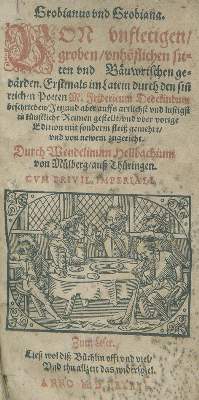 Grobianus vnd Grobiana.
VON vnfletigen/
groben/ vnhöflichen sit-
ten vnd Bäuwrischen ge-
bärden. Erstmals im Latein durch den sinn
reichen Poeten M. Fridericum Dedekindum
beschrieben/ Jetzund aber auffs artlichst vnd lustigst
in künstliche Reimen gestellt/ vnd vber vorige
Edition mit sonderm fleiß gemehrt/
vnd von newem zugericht.
Durch Wendelinum Hellbachium
von Mülberg/ auß Thüringen.
CVM PRIVIL. IMPERIALI.
Zum Leser.
Ließ wol diß Büchlin offt vnd viel/
Vnd thu allzeit das widerspiel.
ANNO